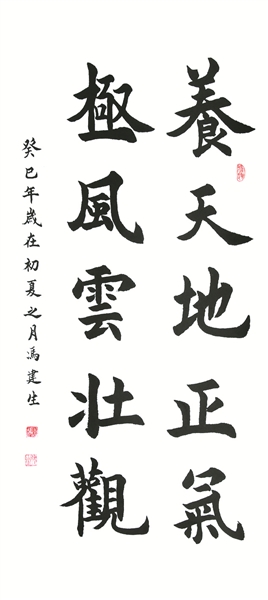 養天地正氣
極風雲壯觀
癸巳年歲在初夏之月馮建生